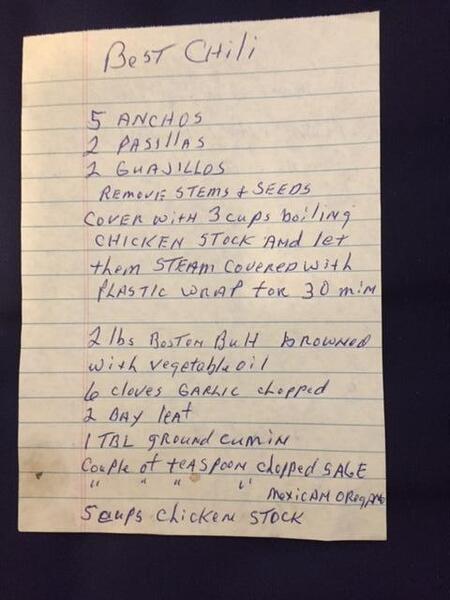 Best Chili
5 ANCHOS
2 PASillAS
2 GUAJILLOS
REMOVE STEMS & SEEDS
COVER WITH 3 cups boiling
CHICKEN STOCK AND let
them STEAM COVERED with
PLASTIC WRAP for 30 min
2 lbs BOSTON Butt browned
with vegetable oil
6 cloves GARLIC chopped
2 BAY leaf
1 TBL ground cumin
Couple of teaspoon chopped SAGE
" " " " MexicAN Oregano
5 cups chicken STOCK